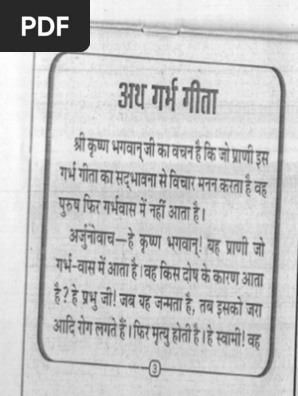 PDF
अथ गर्भ गीता
श्री कृष्ण भगवान् जी का वचन है कि जो प्राणी इस
गर्भ गीता का सद्भावना से विचार मनन करता है वह
पुरुष फिर गर्भवास में नहीं आता है।
अर्जुनोवाच—हे कृष्ण भगवान्! यह प्राणी जो
गर्भ-वास में आता है। वह किस दोष के कारण आता
है? हे प्रभु जी! जब यह जन्मता है, तब इसको जरा
आदि रोग लगते हैं। फिर मृत्यु होती है। हे स्वामी! वह
3